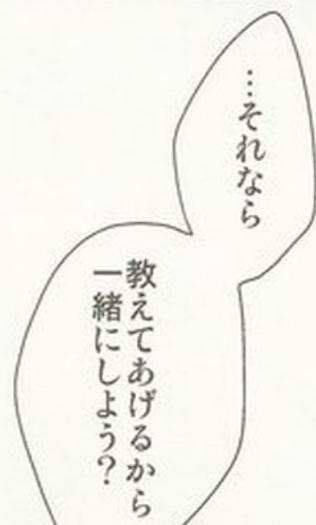 …それなら
教えてあげるから
一緒にしよう？